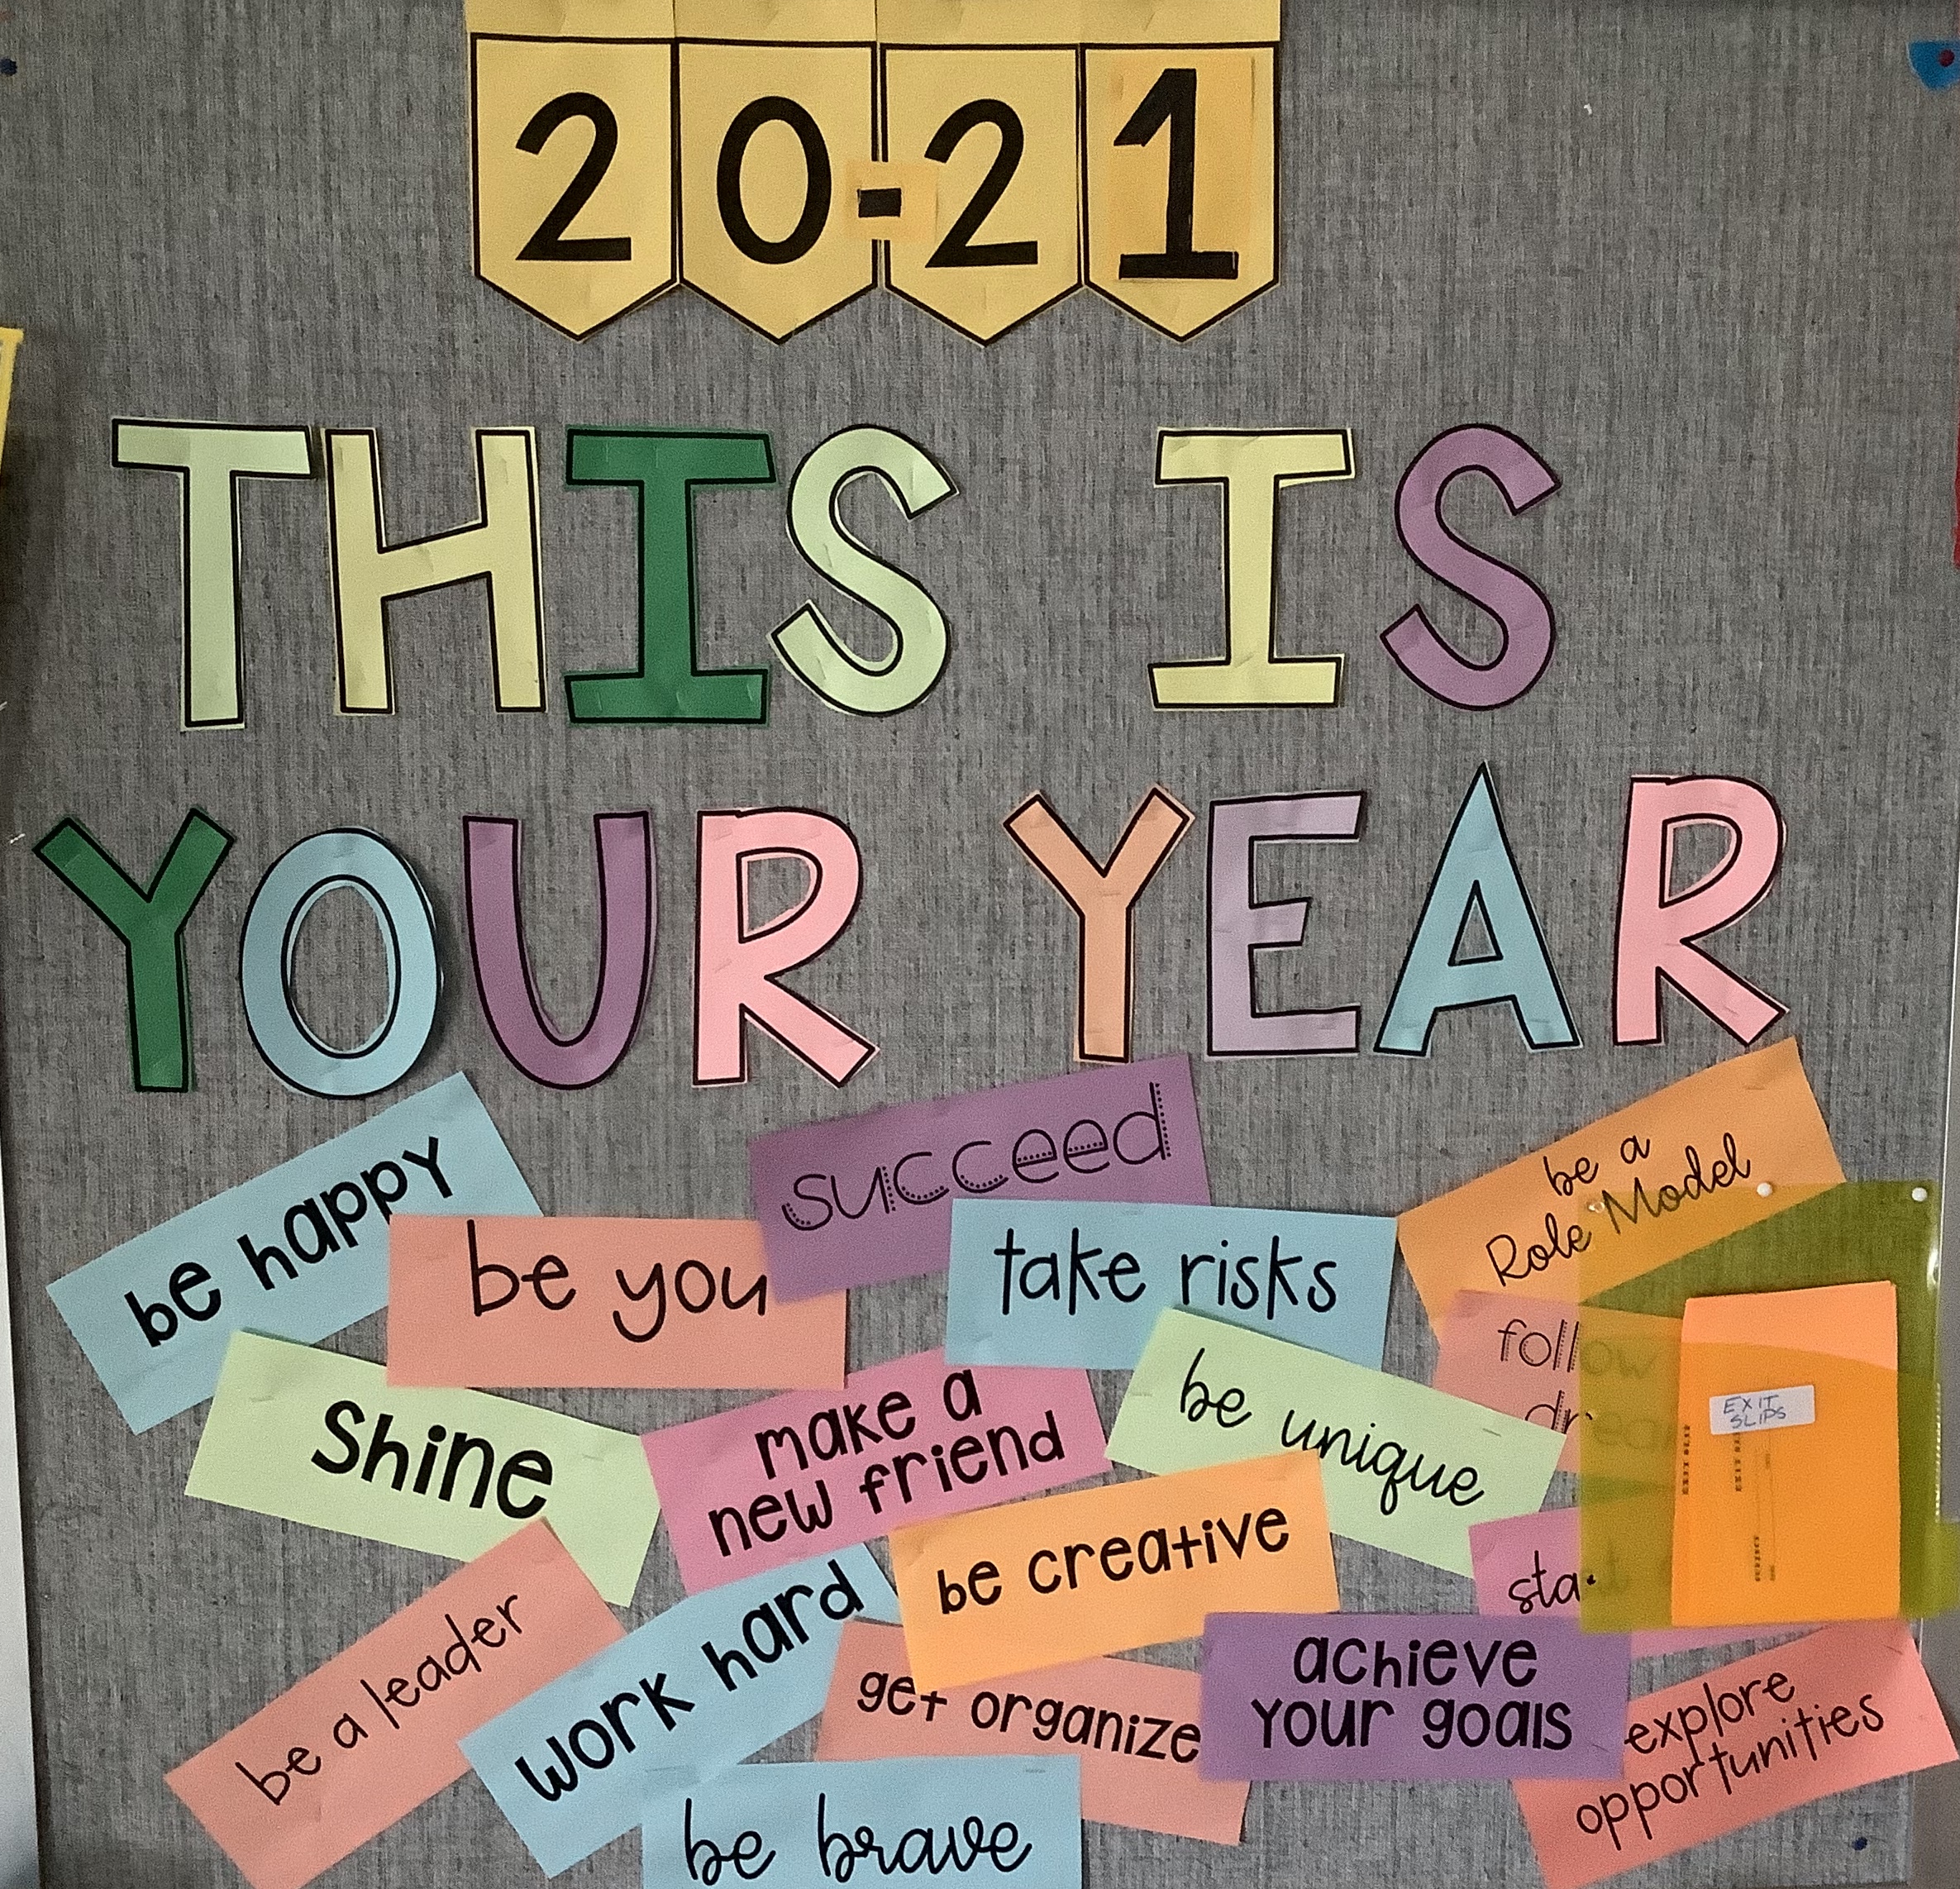 20-21
THIS IS
YOUR YEAR
be happy
be you
succeed
take risks
be a
Role Model
follow
Shine
make a
new friend
be unique
EXIT
SLIPS
be a leader
work hard
be creative
get organize
achieve
your goals
explore
opportunities
be brave